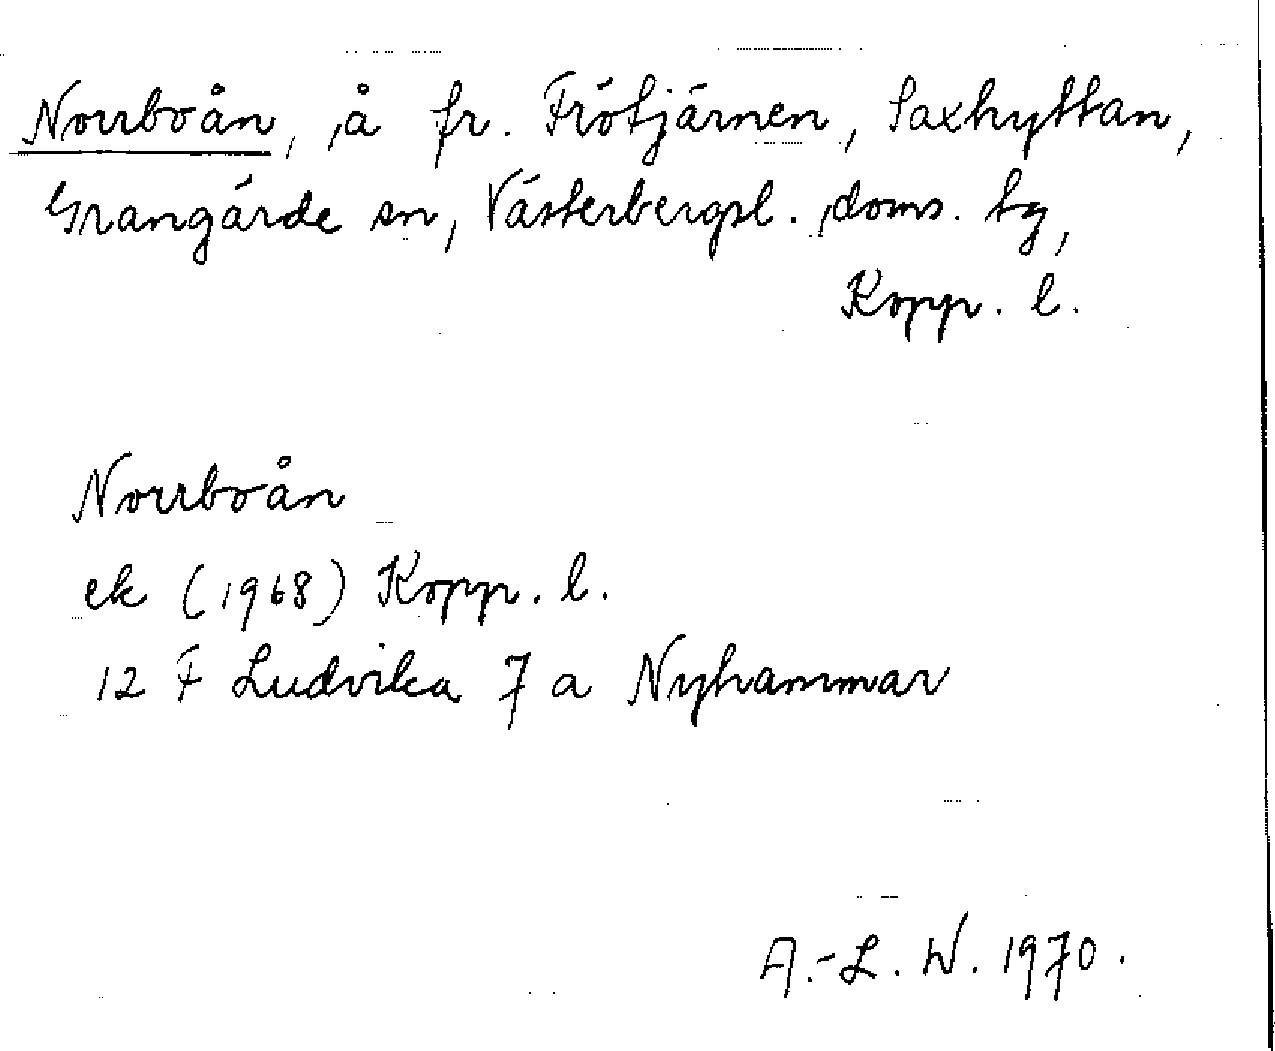 Norrboån, å fr. Frötjärnen, Saxhyttan,
Grangärde sn, Västerbergsl. doms. tg,
Kopp. l.
Norrboån
ek (1968) Kopp. l.
12 F Ludvika 7 a Nyhammar
A.-L. W. 1970.